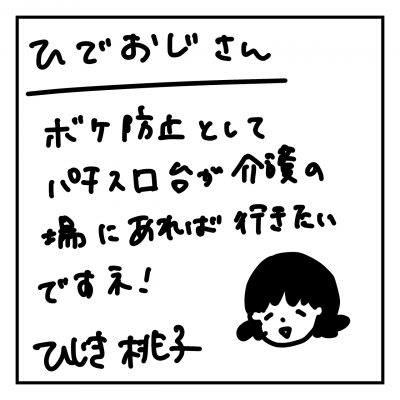 ひでおじさん
ボケ防止として
パチスロ台が介護の
場にあれば行きたい
ですネ!
ひじき桃子